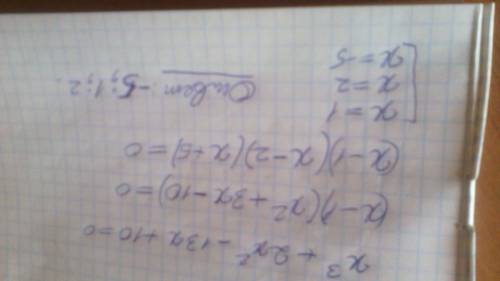 x³ + 2x² - 13x + 10 = 0
(x-1)(x² + 3x - 10) = 0
(x-1)(x-2)(x+5) = 0
[x = 1
x = 2
x = -5
Ответ: -5; 1; 2.